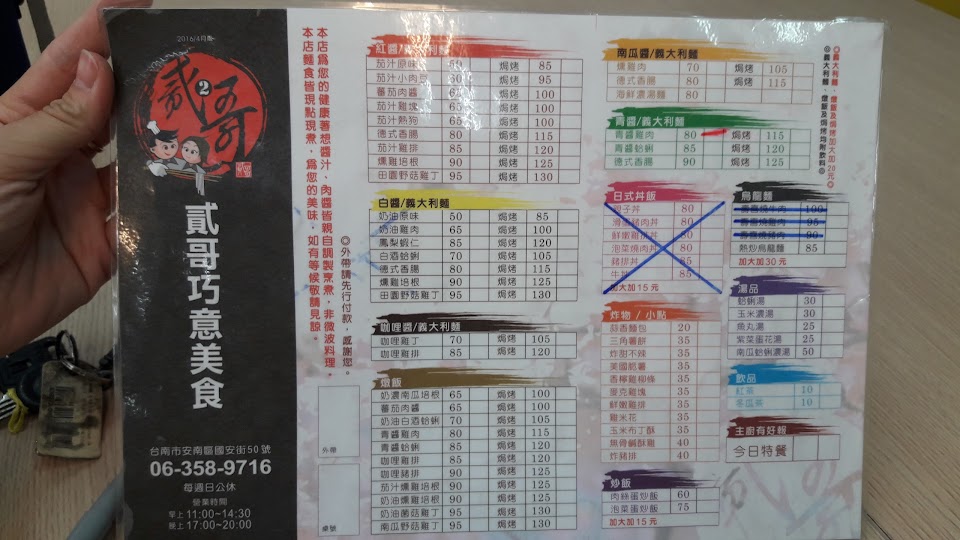 2016/4月版
貳哥
2
貳哥巧意美食
台南市安南區國安街50號
06-358-9716
每週日公休
營業時間
早上11:00~14:30
晚上17:00~20:00
本店為您的健康著想醬汁、肉醬皆親自調製烹煮，非微波料理，
本店麵食皆現點現煮，為您的美味，如有等候敬請見諒。
◎外帶請先行付款，感謝您。
外帶
桌號
紅醬/義大利麵
茄汁原味 50 焗烤 85
茄汁小肉豆 焗烤 95
蕃茄肉醬 65 焗烤 100
茄汁雞塊 65 焗烤 100
茄汁熱狗 65 焗烤 100
德式香腸 80 焗烤 115
茄汁雞排 85 焗烤 120
燻雞培根 90 焗烤 125
田園野菇雞丁 95 焗烤 130
白醬/義大利麵
奶油原味 50 焗烤 85
奶油雞肉 65 焗烤 100
鳳梨蝦仁 85 焗烤 120
白酒蛤蜊 70 焗烤 105
德式香腸 80 焗烤 115
燻雞培根 90 焗烤 125
田園野菇雞丁 95 焗烤 130
咖哩醬/義大利麵
咖哩雞丁 70 焗烤 105
咖哩雞排 85 焗烤 120
燉飯
奶濃南瓜培根 65 焗烤 100
蕃茄肉醬 65 焗烤 100
奶油白酒蛤蜊 70 焗烤 105
青醬雞肉 80 焗烤 115
青醬蛤蜊 85 焗烤 120
咖哩雞排 85 焗烤 120
咖哩豬排 90 焗烤 125
茄汁燻雞培根 90 焗烤 125
奶油燻雞培根 90 焗烤 125
奶油菌菇雞丁 95 焗烤 130
南瓜野菇雞丁 95 焗烤 130
南瓜醬/義大利麵
燻雞肉 70 焗烤 105
德式香腸 80 焗烤 115
海鮮濃湯麵 80
青醬/義大利麵
青醬雞肉 80 焗烤 115
青醬蛤蜊 85 焗烤 120
德式香腸 90 焗烤 125
日式丼飯
親子丼 80
滑蛋豬肉丼 80
鮮嫩雞排丼 80
泡菜燒肉丼 85
豬排丼 85
牛丼 85
加大加15元
炸物 / 小點
蒜香麵包 20
三角薯餅 35
炸甜不辣 35
美國脆薯 35
香檸雞柳條 35
麥克雞塊 35
鮮嫩雞排 35
雞米花 35
玉米布丁酥 35
無骨鹹酥雞 40
炸豬排 40
炒飯
肉絲蛋炒飯 60
泡菜蛋炒飯 75
加大加15元
◎義大利麵、燉飯及焗烤加大加20元◎
◎義大利麵、燉飯及焗烤均附飲料◎
烏龍麵
100
95
90
熱炒烏龍麵 85
加大加30元
湯品
蛤蜊湯 30
玉米濃湯 30
魚丸湯 25
紫菜蛋花湯 25
南瓜蛤蜊濃湯 50
飲品
紅茶 10
冬瓜茶 10
主廚有好料
今日特餐